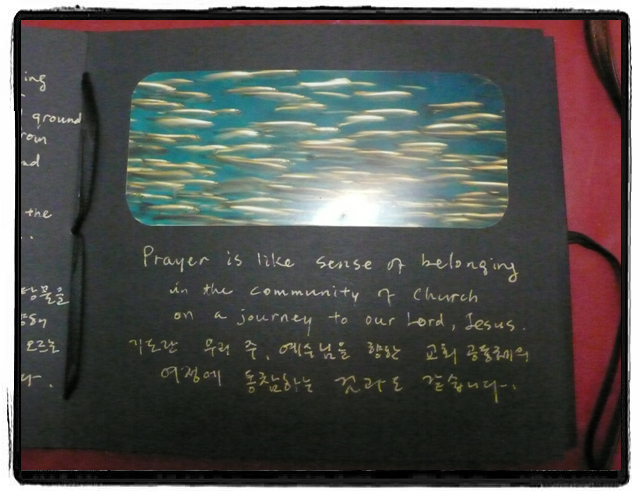 ing
ground
the
Prayer is like sense of belonging
in the community of Church
on a journey to our Lord, Jesus.
기도란 우리 주, 예수님을 향한 교회 공동체의
여정에 동참하는 것과도 같습니다.